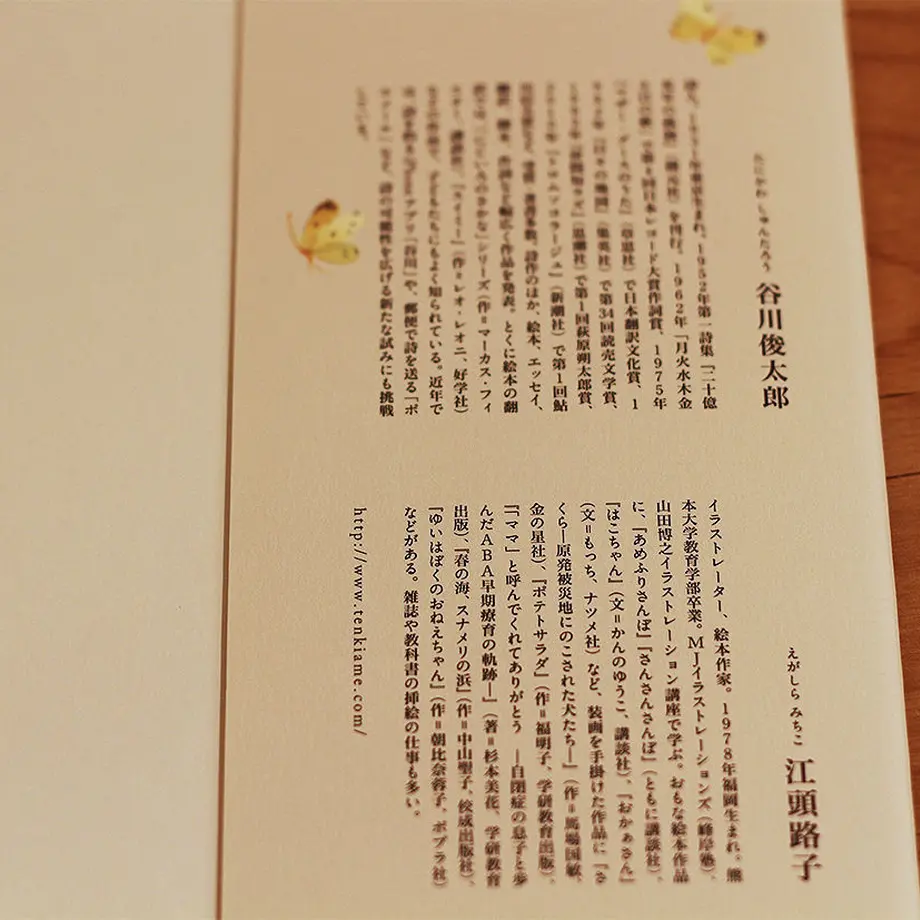 たにかわ しゅんたろう 谷川俊太郎
詩人。1931年東京生まれ。1952年第一詩集『二十億
光年の孤独』(創元社)を刊行。1962年「月火水木金
土日の歌」で第4回日本レコード大賞作詞賞、1975年
『マザー・グースのうた』(草思社)で日本翻訳文化賞、1
982年『日々の地図』(集英社)で第34回読売文学賞、
1993年『世間知ラズ』(思潮社)で第1回萩原朔太郎賞、
2010年『トロムソコラージュ』(新潮社)で第1回鮎
川信夫賞など、受賞・著書多数。詩作のほか、絵本、エッセイ、
翻訳、脚本、作詞など幅広く作品を発表。とくに絵本の翻
訳では、「にじいろのさかな」シリーズ(作=マーカス・フィ
スター、講談社)、『スイミー』(作=レオ・レオニ、好学社)
などの作品で、子どもたちにもよく知られている。近年で
は、詩を釣るiPhoneアプリ「谷川」や、郵便で詩を送る「ポ
エメール」など、詩の可能性を広げる新たな試みにも挑戦
している。
えがしら みちこ 江頭路子
イラストレーター、絵本作家。1978年福岡生まれ。熊
本大学教育学部卒業。MJイラストレーションズ(峰岸塾)、
山田博之イラストレーション講座で学ぶ。おもな絵本作品
に、『あめふりさんぽ』『さんさんさんぽ』(ともに講談社)、
『はこちゃん』(文=かんのゆうこ、講談社)、『おかあさん』
(文=もっち、ナツメ社)など、装画を手掛けた作品に『さ
くら―原発被災地にのこされた犬たち―』(作=馬場国敏、
金の星社)、『ポテトサラダ』(作=福明子、学研教育出版)、
『「ママ」と呼んでくれてありがとう ―自閉症の息子と歩
んだABA早期療育の軌跡―』(著=杉本美花、学研教育
出版)、『春の海、スナメリの浜』(作=中山聖子、佼成出版社)、
『ゆいはぼくのおねえちゃん』(作=朝比奈蓉子、ポプラ社)
などがある。雑誌や教科書の挿絵の仕事も多い。
http://www.tenkiame.com/